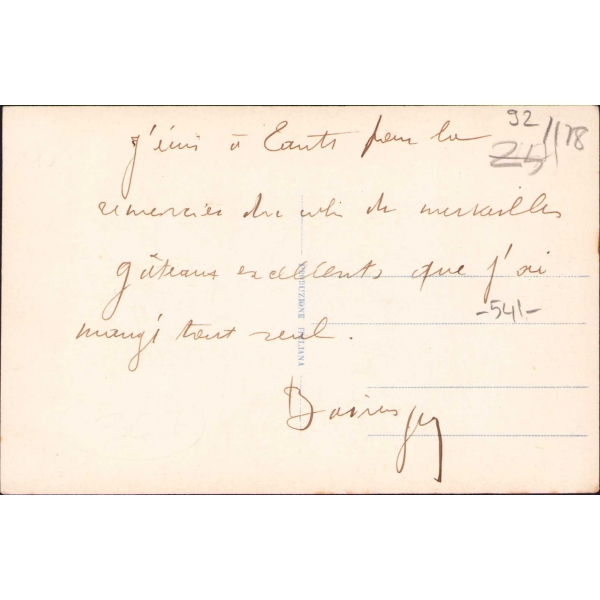 92/178
25
j'écris à Tante pour la
remercier du colis de merveilles
gâteaux excellents que j'ai
mangé tout seul.
-541-
PRODUZIONE ITALIANA